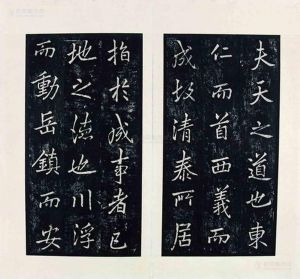 夫天之道也東
仁而首西義而
成故清泰所居
指於成事者已
地之德也川浮
而動岳鎮而安